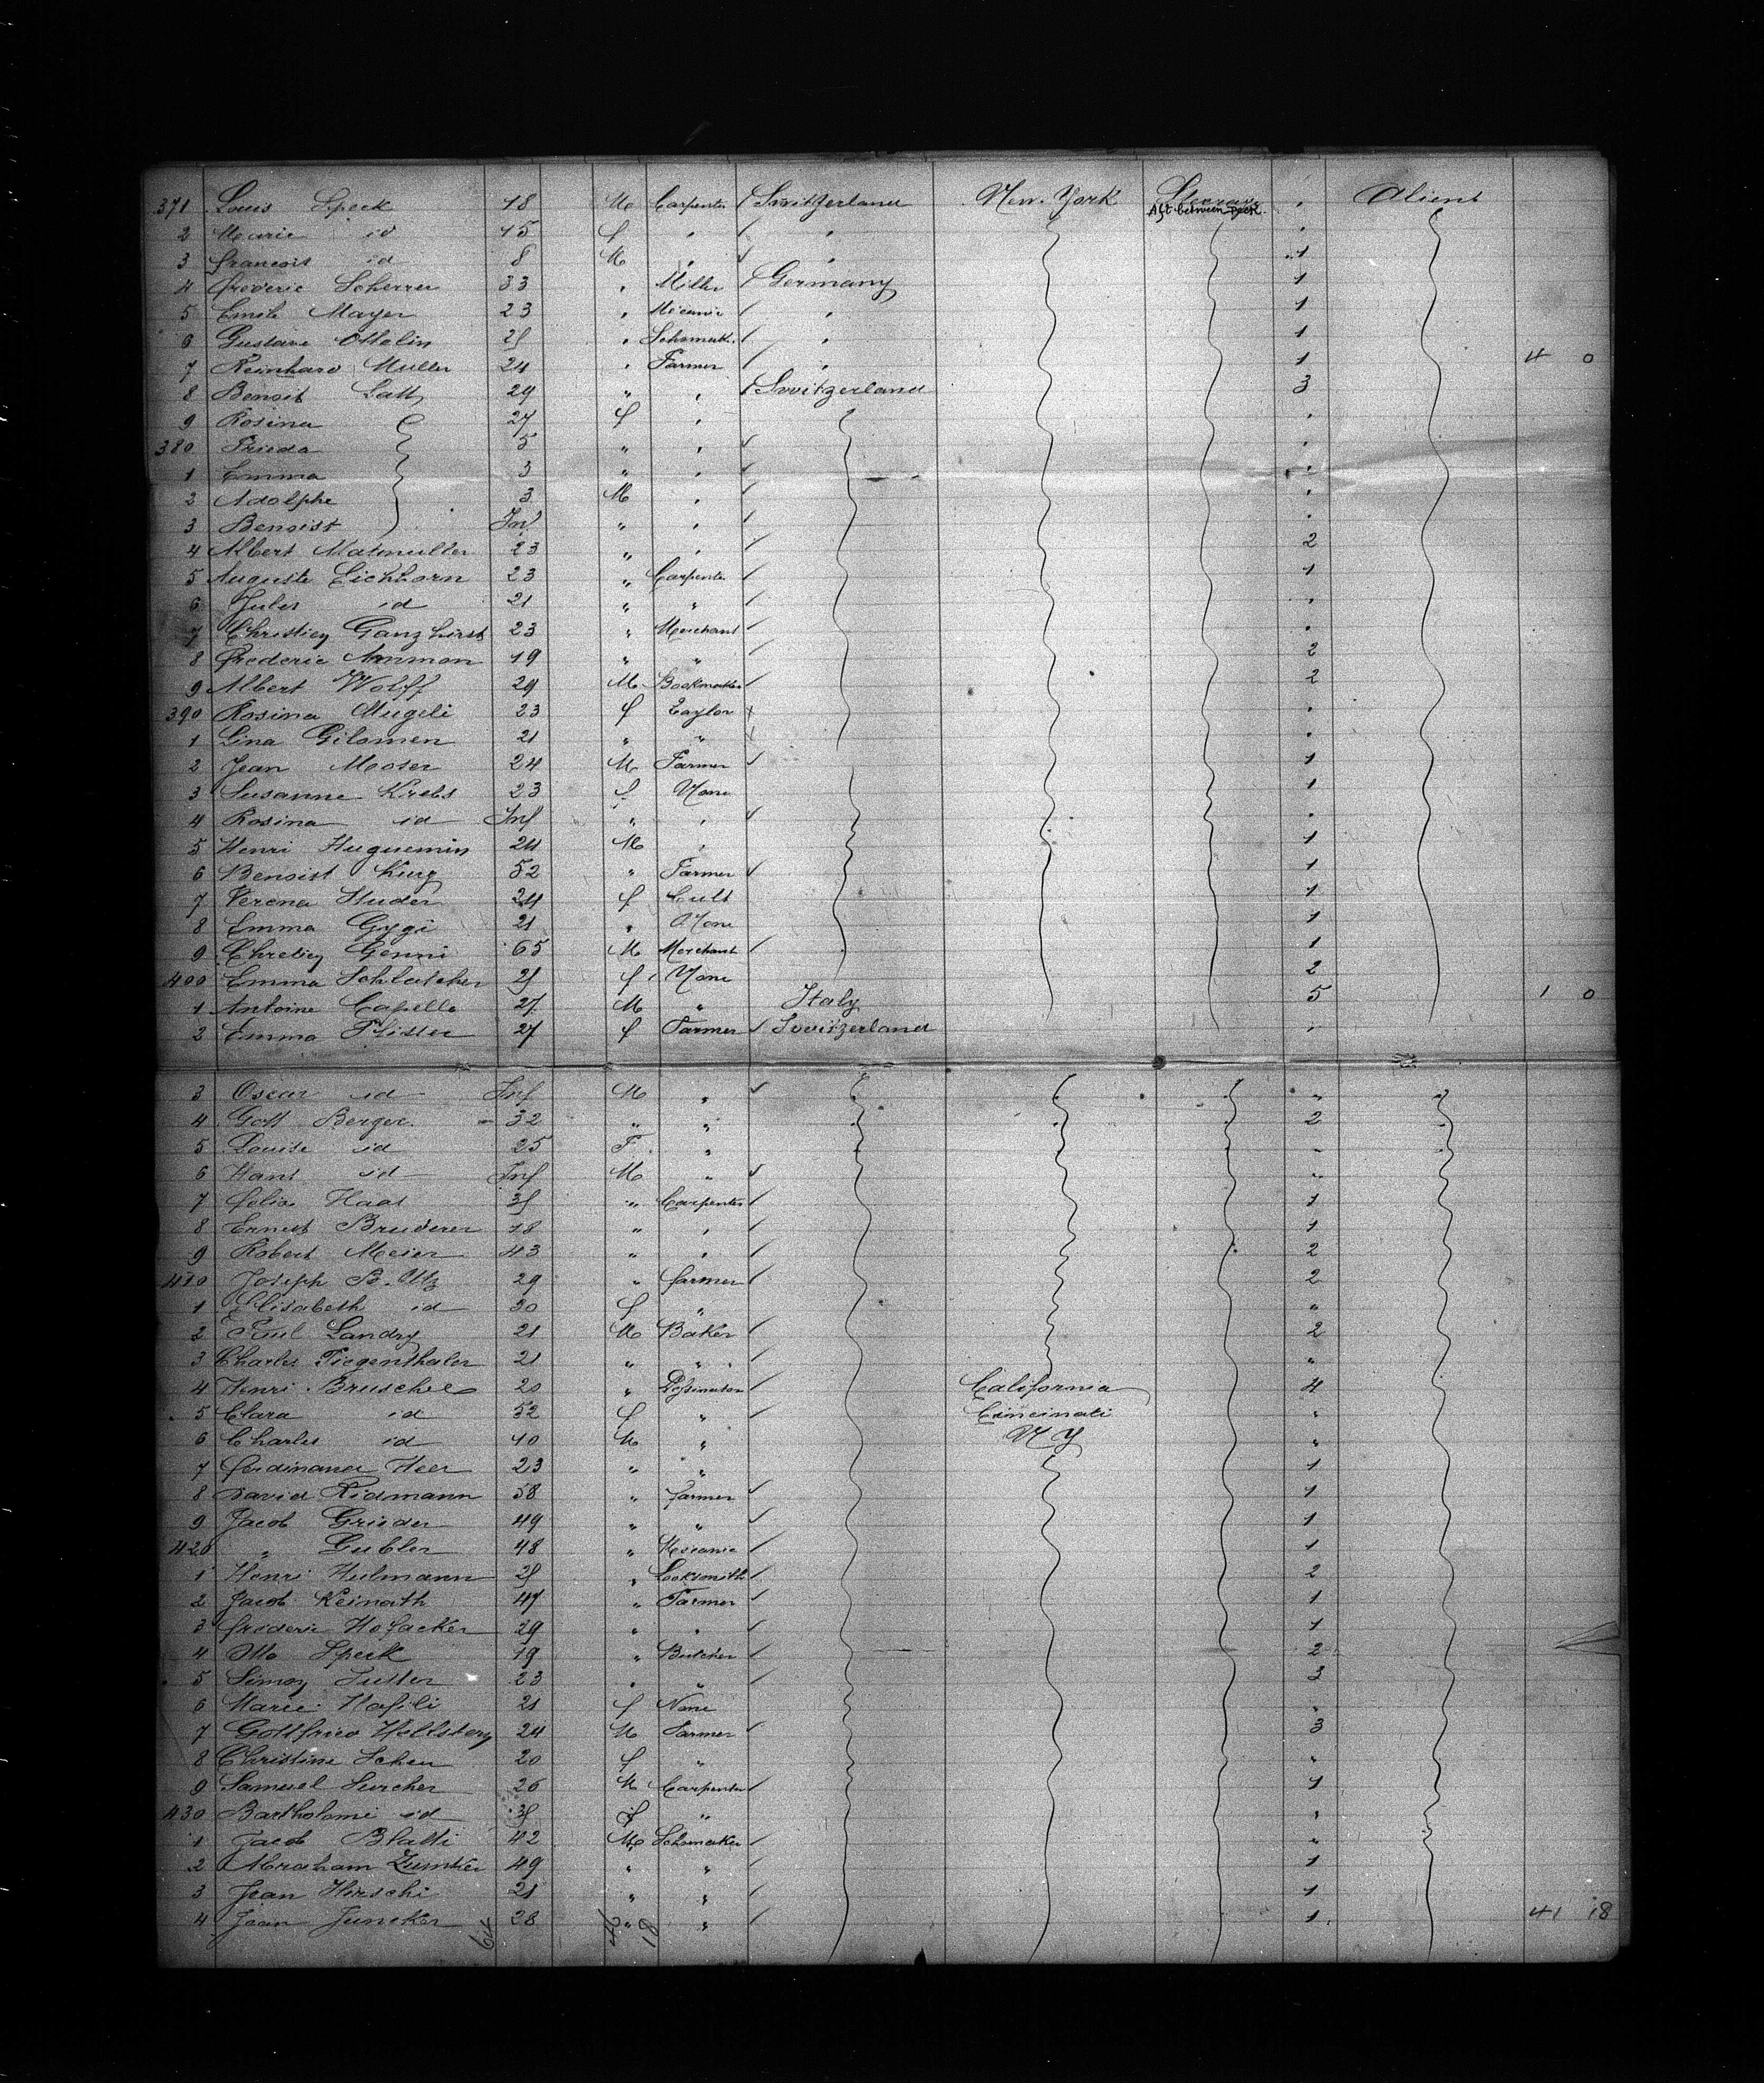 371 Louis Speck 18 M Carpenter Switzerland New-York Steerage " Alient
Aft between Deck
2 Marie id 15 f " " "
3 francois id 8 M " " 1
4 frederic Scherrer 33 " Miller Germany 1
5 Emile Mayer 23 " Mecanic " 1
6 Gustave 25 " " 1
7 Reinhard Muller 24 " Farmer " 1 4 0
8 Benoit 29 " " Switzerland 3
9 Rosina 27 f " "
380 Frieda 5 " " "
1 Emma 3 " " "
2 Adolphe 3 M " "
3 Benoist Inf " " "
4 Albert 23 " " 2
5 Auguste Eichhorn 23 " Carpenter 1
6 Jules id 21 " " "
7 Christien 23 " Merchant "
8 frederic Amman 19 " " 2
9 Albert Wolff 29 M 2
390 Rosina Mugeli 23 f Taylor "
1 Lina Gilomen 21 " " "
2 Jean Moser 24 M Farmer 1
3 Susanne Krebs 23 f None 1
4 Rosina id Inf " " "
5 Henri Huguemin 24 M " 1
6 Benoist 52 " Farmer 1
7 Verena Studer 24 f Cult 1
8 Emma Gygi 21 " None 1
9 Chretien Genni 65 M Merchant 1
400 Emma Schlatcher 25 f None 2
1 Antoine Capelle 27 M " Italy 5 1 0
2 Emma Pfister 27 f Farmer Switzerland "
3 Oscar id Inf M " "
4 Gott Berger 32 " " 2
5 Louise id 25 F " "
6 Hans id Inf M " "
7 felix Haas 35 " Carpenter 1
8 Ernest Bruderer 18 " " 1
9 Robert Meier 43 " " 2
410 Joseph B. Utz 29 " farmer 2
1 Elisabeth id 30 f " "
2 Paul Landry 21 M Baker 2
3 Charles Tiegenthaler 21 " " "
4 Henri 20 " California 4
5 Clara id 52 f " Cincinati "
6 Charles id 10 M " N Y "
7 ferdinand Heer 23 " " 1
8 David Ridmann 58 " farmer 1
9 Jacob Grieder 49 " " 1
420 " Gubler 48 " Mecanic 1
1 Henri Hulmann 25 " Locksmith 2
2 Jacob Reinath 47 " Farmer 1
3 frederic Hofacker 29 " " 1
4 Otto Speck 19 " Butcher 2
5 Simon Sutter 23 " " 3
6 Marie Hafili 21 f None "
7 Gottfried 24 M Farmer 3
8 Christine 20 f " "
9 Samuel Surcher 26 M Carpenter 1
430 Bartholomi id 35 f " "
1 Jacob Blatti 42 M Schomaker "
2 Abraham 49 " " 1
3 Jean Hirschi 21 " " 1
4 Jean Juncker 28 " " 1 41 18
64 46 18